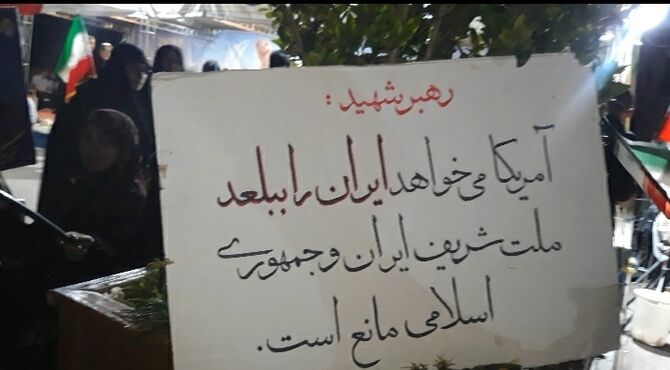 رهبر شهید :
آمریکا می‌خواهد ایران را ببلعد
ملت شریف ایران و جمهوری
اسلامی مانع است.